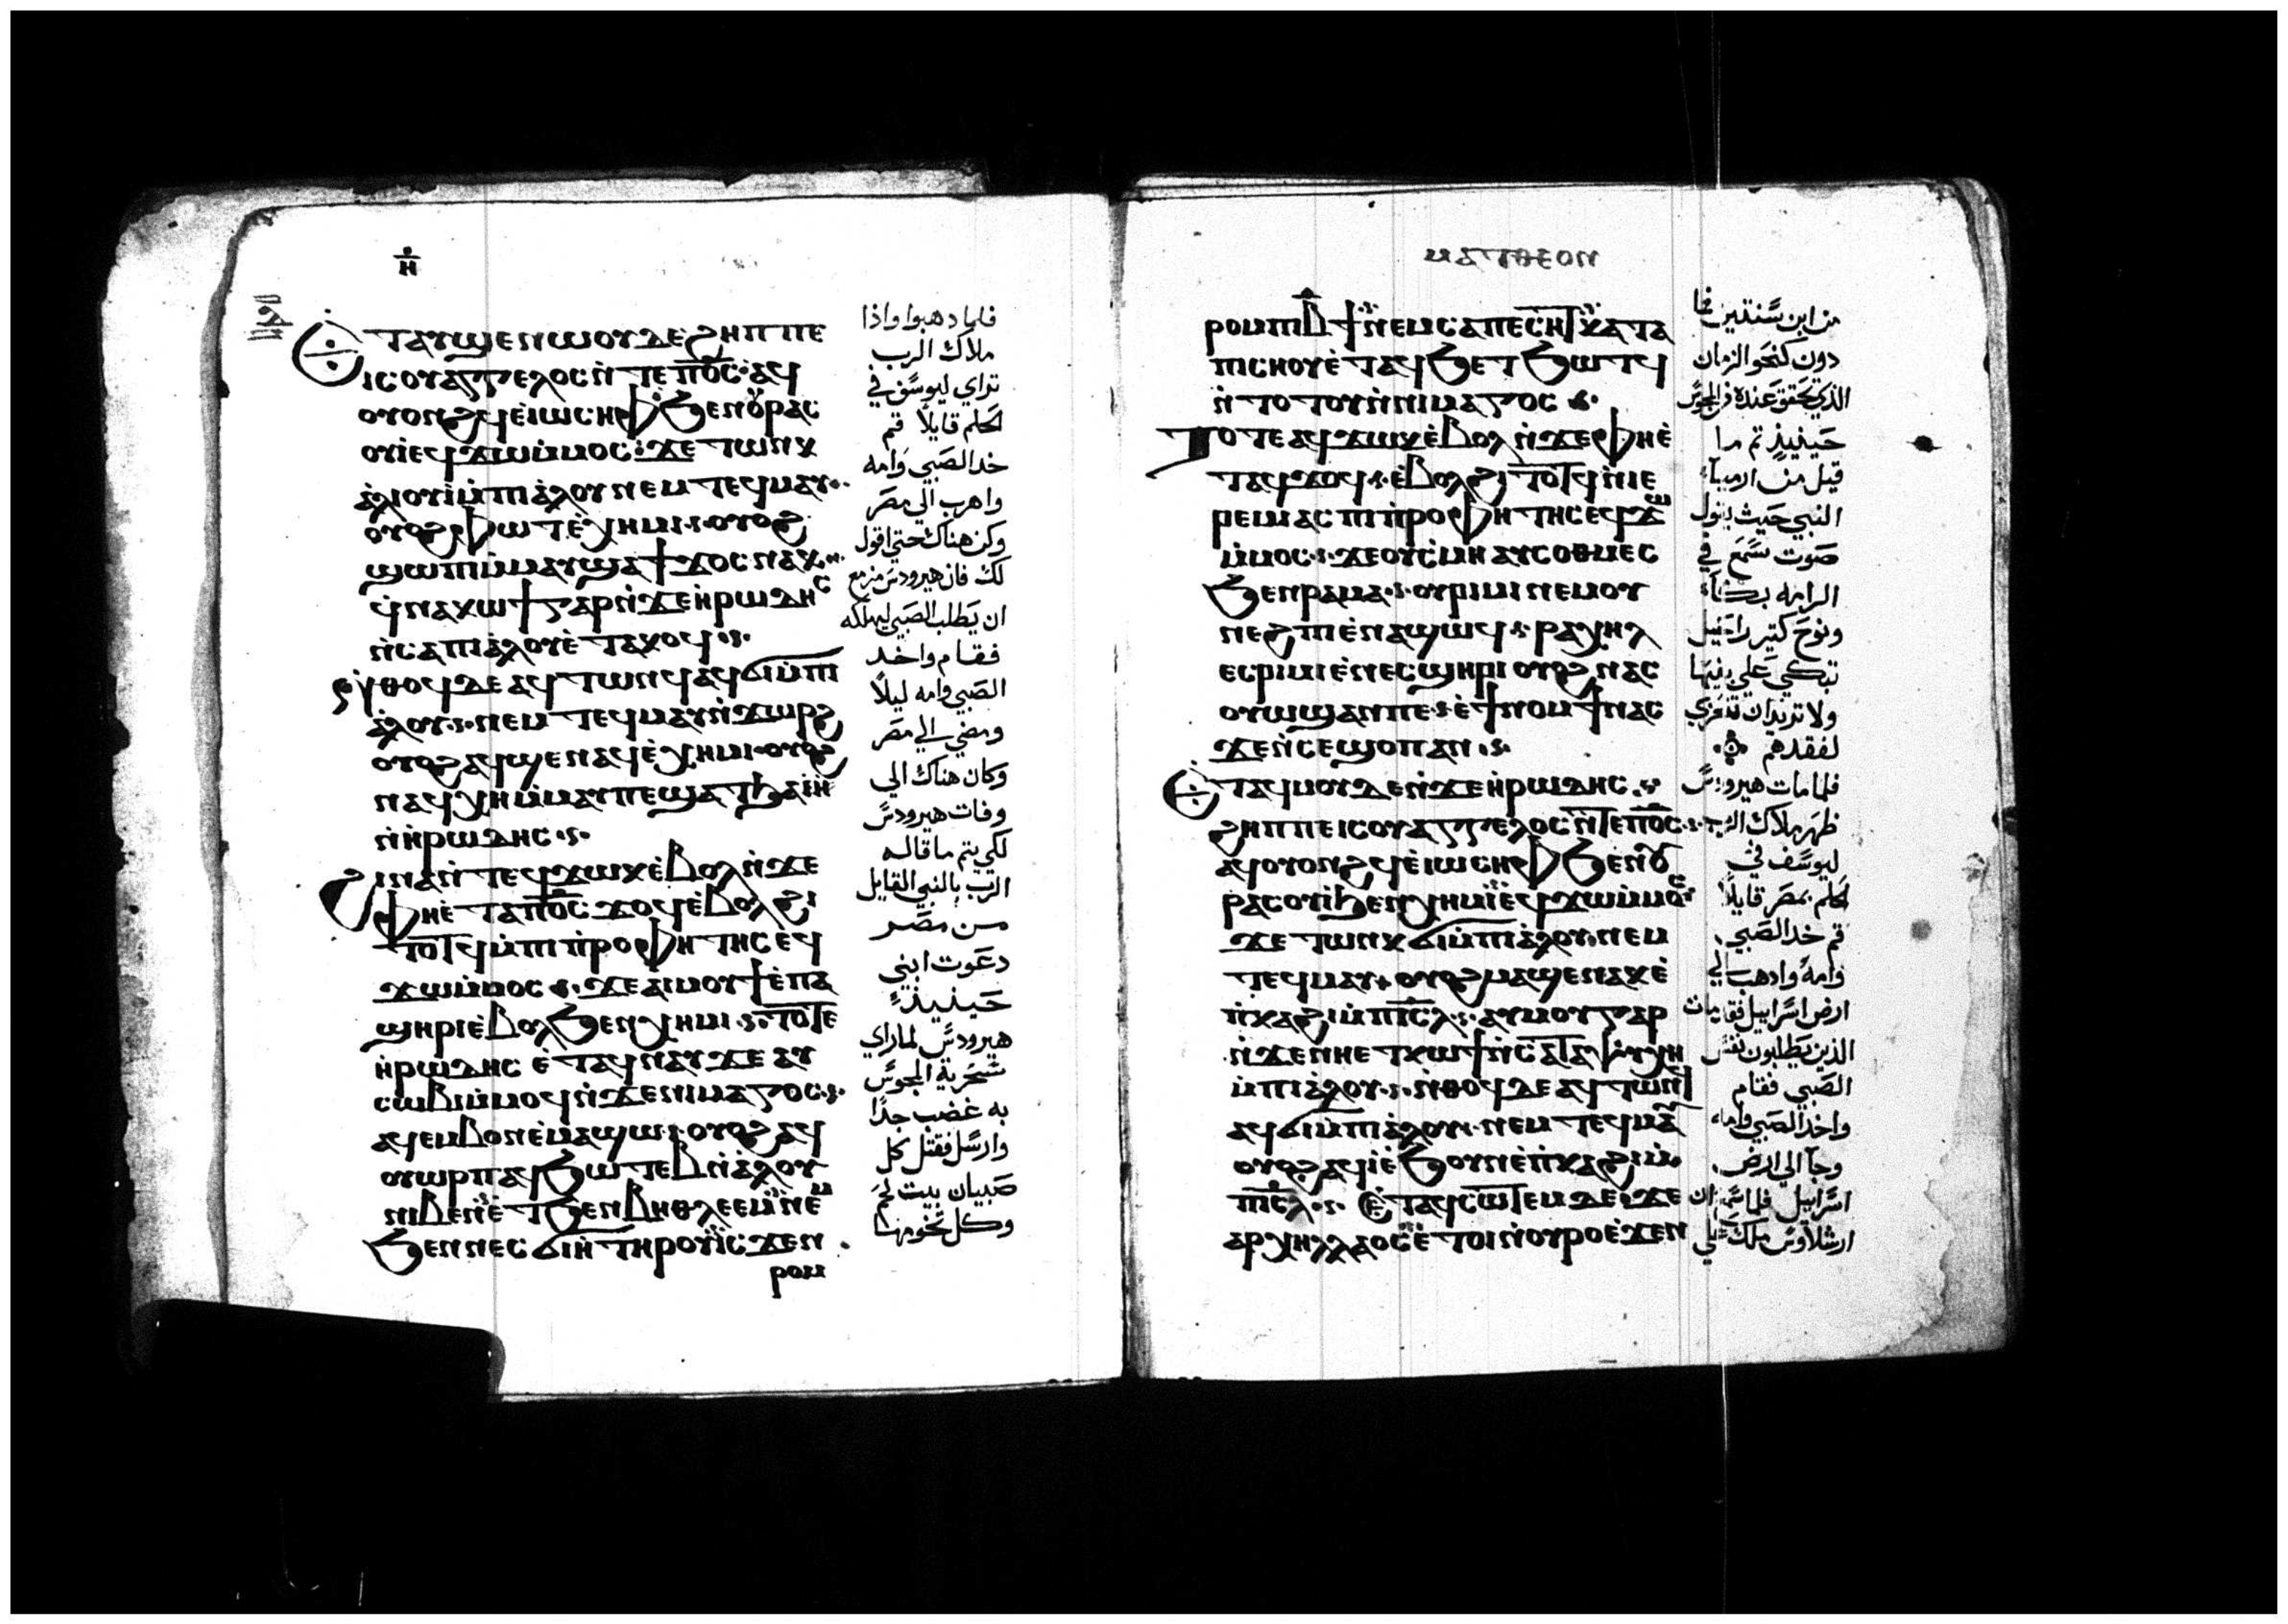 ⲏ̄
ⲇ
ⲉ̇ⲧⲁⲩϣⲉⲛⲱⲟⲩ ⲇⲉ ϩⲏⲡⲡⲉ
ⲓⲥ ⲟⲩⲁⲅⲅⲉⲗⲟⲥ ⲛ̇ⲧⲉ ⲡ⳪ ⲁϥ
ⲟⲩⲟⲛϩϥ ⲉ̇ⲓⲱⲥⲏⲫ ϧⲉⲛ ⲟⲩⲣⲁⲥ
ⲟⲩⲓ ⲉϥϫⲱ ⲙ̇ⲙⲟⲥ ϫⲉ ⲧⲱⲛⲕ
ⲁ̇ⲗⲓⲟⲩⲓ̇ ⲙ̇ⲡⲓⲁ̇ⲗⲟⲩ ⲛⲉⲙ ⲧⲉϥⲙⲁⲩ
ⲟⲩⲟϩ ⲫⲱⲧ ⲉ̇ⲭⲏⲙⲓ ⲟⲩⲟϩ
ϣⲱⲡⲓ ⲙ̇ⲙⲁⲩ ϣⲁϯϫⲟⲥ ⲛⲁⲕ
ϥ̇ⲛⲁⲕⲱϯ ⲅⲁⲣ ⲛ̇ϫⲉ ⲏ̇ⲣⲱⲇⲏⲥ
ⲛ̇ⲥⲁ ⲡⲓⲁ̇ⲗⲟⲩ ⲉ̇ⲧⲁⲕⲟϥ
ⲛ̇ⲑⲟϥ ⲇⲉ ⲁϥⲧⲱⲛϥ ⲁϥϭⲓ ⲙ̇ⲡⲓ
ⲁ̇ⲗⲟⲩ ⲛⲉⲙ ⲧⲉϥⲙⲁⲩ ⲛ̇ϫⲱⲣϩ
ⲟⲩⲟϩ ⲁϥϣⲉⲛⲁϥ ⲉ̇ⲭⲏⲙⲓ ⲟⲩⲟϩ
ⲛⲁϥⲭⲏ ⲙ̇ⲙⲁⲩ ⲡⲉ ϣⲁ ⲧϧⲁⲏ̇
ⲛ̇ⲏ̇ⲣⲱⲇⲏⲥ
ϩⲓⲛⲁ ⲛ̇ⲧⲉϥϫⲱⲕ ⲉ̇ⲃⲟⲗ ⲛ̇ϫⲉ
ⲫⲏ ⲉ̇ⲧⲁ ⲡ⳪ ϫⲟϥ ⲉ̇ⲃⲟⲗϩⲓ
ⲧⲟⲧϥ ⲙ̇ⲡⲓⲡ̇ⲣⲟⲫⲏⲧⲏⲥ ⲉϥ
ϫⲱ ⲙ̇ⲙⲟⲥ ϫⲉ ⲁⲓⲙⲟⲩϯ ⲉ̇ⲡⲁ
ϣⲏⲣⲓ ⲉ̇ⲃⲟⲗ ϧⲉⲛ ⲭⲏⲙⲓ ⲧⲟⲧⲉ
ⲏ̇ⲣⲱⲇⲏⲥ ⲉⲧⲁϥⲛⲁⲩ ϫⲉ ⲁⲩ
ⲥⲱⲃⲓ ⲙ̇ⲙⲟϥ ⲛ̇ϫⲉ ⲛⲓⲙⲁⲅⲟⲥ
ⲁϥⲉⲙⲃⲟⲛ ⲉ̇ⲙⲁϣⲱ ⲟⲩⲟϩ ⲁϥ
ⲟⲩⲱⲣⲡ ⲁϥϧⲱⲧⲉⲃ ⲛ̇ⲁ̇ⲗⲟⲩ
ⲛⲓⲃⲉⲛ ⲉⲧϧⲉⲛ ⲃⲏⲑⲗⲉⲉⲙ ⲛⲉⲙ
ϧⲉⲛ ⲛⲉⲥϭⲓⲏ̇ ⲧⲏⲣⲟⲩ ⲓⲥϫⲉⲛ
ⲣⲟⲙ
فلما دهبوا واذا
ملاك الرب
تراي ليوسف في
الحلم قايلاً قم
خد الصبي وامه
واهرب الي مصر
وكن هناك حتي اقول
لك فان هيرودس مزمع
ان يطلب الصبي ليهلكه
فقام واخد
الصبي وامه ليلاً
ومضي الي مصر
وكان هناك الي
وفات هيرودس
لكي يتم ما قاله
الرب بالنبي القايل
من مصر
دعوت ابني
حينيذٍ
هيرودس لما راي
سخرية المجوس
به غضب جدًا
وارسل فقتل كل
صبيان بيت لحم
وكل تخومها
ⲙⲁⲧⲑⲉⲟⲛ
ⲣⲟⲙⲡⲓ ⲃ̄ϯ ⲛⲉⲙ ⲥⲁⲡⲉⲥⲏⲧ ⲕⲁⲧⲁ
ⲡⲓⲥⲏⲟⲩ ⲉ̇ⲧⲁϥϧⲉⲧϧⲱⲧϥ
ⲛ̇ⲧⲟⲧⲟⲩ ⲛ̇ⲛⲓⲙⲁⲅⲟⲥ
ⲧⲟⲧⲉ ⲁϥϫⲱⲕ ⲉ̇ⲃⲟⲗ ⲛ̇ϫⲉ ⲫⲏ ⲉ̇
ⲧⲁϥϫⲟϥ ⲉ̇ⲃⲟⲗϩⲓⲧⲟⲧϥ ⲛ̇ⲓⲉ
ⲣⲉⲙⲓⲁⲥ ⲡⲓⲡ̇ⲣⲟⲫⲏⲧⲏⲥ ⲉϥϫⲱ
ⲙ̇ⲙⲟⲥ ϫⲉ ⲟⲩⲥ̇ⲙⲏ ⲁⲩⲥⲟⲑⲙⲉⲥ
ϧⲉⲛ ⲣⲁⲙⲁ ⲟⲩⲣⲓⲙⲓ ⲛⲉⲙ ⲟⲩ
ⲛⲉϩⲡⲓ ⲉ̇ⲛⲁϣⲱϥ ⲣⲁⲭⲏⲗ
ⲉⲥⲣⲓⲙⲓ ⲉ̇ⲛⲉⲥϣⲏⲣⲓ ⲟⲩⲟϩ ⲛⲁⲥ
ⲟⲩⲱϣ ⲁⲛ ⲡⲉ ⲉ̇ϯⲛⲟⲙϯ ⲛⲁⲥ
ϫⲉ ⲛ̇ⲥⲉϣⲟⲡ ⲁⲛ
ⲉ̇ⲧⲁϥⲙⲟⲩ ⲇⲉ ⲛ̇ϫⲉ ⲏ̇ⲣⲱⲇⲏⲥ
ϩⲏⲡⲡⲉ ⲓⲥ ⲟⲩⲁⲅⲅⲉⲗⲟⲥ ⲛ̇ⲧⲉ ⲡ⳪
ⲁϥⲟⲩⲟⲛϩϥ ⲉ̇ⲓⲱⲥⲏⲫ ϧⲉⲛ ⲟⲩ
ⲣⲁⲥⲟⲩⲓ ϧⲉⲛ ⲭⲏⲙⲓ ⲉϥϫⲱ ⲙ̇ⲙⲟⲥ
ϫⲉ ⲧⲱⲛⲕ ϭⲓ ⲙ̇ⲡⲓⲁ̇ⲗⲟⲩ ⲛⲉⲙ
ⲧⲉϥⲙⲁⲩ ⲟⲩⲟϩ ⲙⲁϣⲉⲛⲁⲕ ⲉ̇
ⲡ̇ⲕⲁϩⲓ ⲙ̇ⲡⲓⲥ̅ⲗ̅ ⲁⲩⲙⲟⲩ ⲅⲁⲣ
ⲛ̇ϫⲉ ⲛⲏ ⲉⲧⲕⲱϯ ⲛ̇ⲥⲁ ⲧⲁⲯⲩⲭⲏ
ⲙ̇ⲡⲓⲁ̇ⲗⲟⲩ ⲛ̇ⲑⲟϥ ⲇⲉ ⲁϥⲧⲱⲛϥ
ⲁϥϭⲓ ⲙ̇ⲡⲓⲁ̇ⲗⲟⲩ ⲛⲉⲙ ⲧⲉϥⲙⲁⲩ
ⲟⲩⲟϩ ⲁϥⲓ̇ ⲉ̇ϧⲟⲩⲛ ⲉ̇ⲡ̇ⲕⲁϩⲓ ⲙ̇
ⲡⲓⲥ̅ⲗ̅ ⲉ̇ⲧⲁϥⲥⲱⲧⲉⲙ ⲇⲉ ϫⲉ
ⲁⲣⲭⲏⲗⲗⲁⲟⲥ ⲉⲧⲟⲓ ⲛ̇ⲟⲩⲣⲟ ⲉ̇ϫⲉⲛ
من ابن سنتين فما
دون كنحو الزمان
الذي تحقق عنده من المجوس
حينيذٍ تم ما
قيل من ارميا
النبي حيث يقول
صوت سمع في
الرامه بكاء
ونوح كتير راحيل
تبكي علي بنيها
ولا تريد ان تتعزي
لفقدهم
فلما مات هيرودس
ظهر ملاك الرب
ليوسف في
الحلم بمصر قايلاً
قم خد الصبي
وامه وادهب الي
ارض اسراييل فقد مات
الذين يطلبون نفس
الصبي فقام
واخد الصبي وامه
وجآ الي ارض
اسراييل فلما سمع ان
ارشلاوس ملك علي